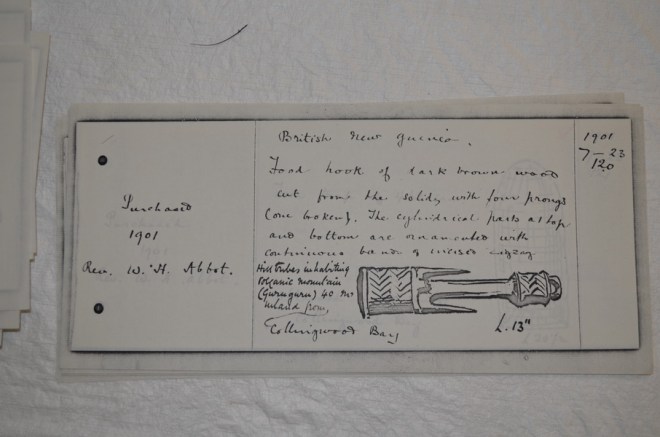 British New Guinea.
1901
7-23
120
Food hook of dark brown wood
cut from the solid, with four prongs
(one broken). The cylindrical parts at top
and bottom are ornamented with
continuous bands of incised zigzag.
Purchased
1901
Rev. W. H. Abbot.
Hill tribes inhabiting
volcanic mountain
(Gwrugwru) 40 m
inland from,
Collingwood Bay
L. 13"